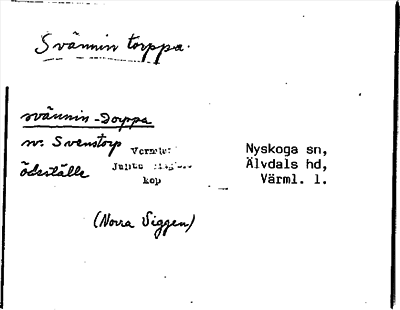 Svännin torppa.
svännin-dorppa
sv. Svenstorp
ödeställe
kop
Nyskoga sn,
Älvdals hd,
Värml. l.
(Norra Viggen)